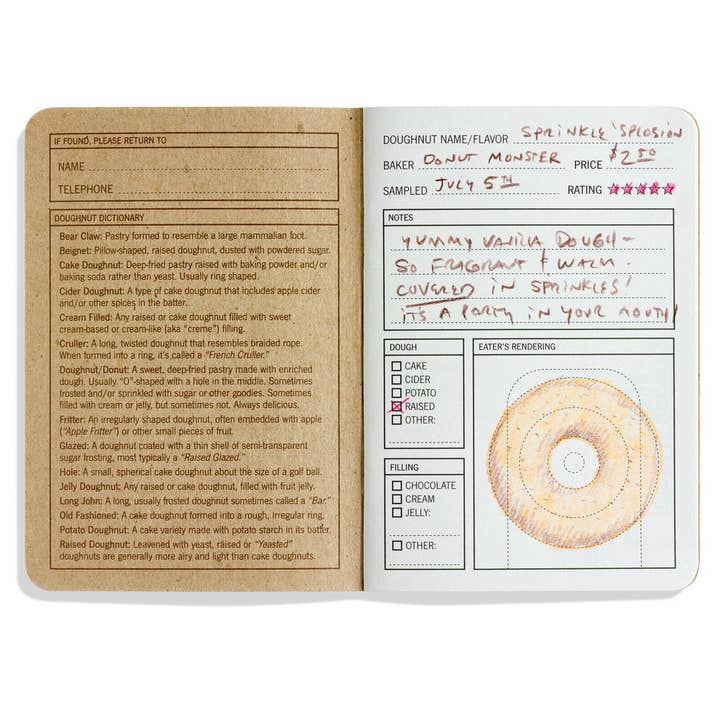 IF FOUND, PLEASE RETURN TO
NAME
TELEPHONE
DOUGHNUT DICTIONARY
Bear Claw: Pastry formed to resemble a large mammalian foot.
Beignet: Pillow-shaped, raised doughnut, dusted with powdered sugar.
Cake Doughnut: Deep-fried pastry raised with baking powder and/or
baking soda rather than yeast. Usually ring shaped.
Cider Doughnut: A type of cake doughnut that includes apple cider
and/or other spices in the batter.
Cream Filled: Any raised or cake doughnut filled with sweet
cream-based or cream-like (aka “creme”) filling.
Cruller: A long, twisted doughnut that resembles braided rope.
When formed into a ring, it's called a “French Cruller.”
Doughnut/Donut: A sweet, deep-fried pastry made with enriched
dough. Usually “O”-shaped with a hole in the middle. Sometimes
frosted and/or sprinkled with sugar or other goodies. Sometimes
filled with cream or jelly, but sometimes not. Always delicious.
Fritter: An irregularly shaped doughnut, often embedded with apple
(“Apple Fritter”) or other small pieces of fruit.
Glazed: A doughnut coated with a thin shell of semi-transparent
sugar frosting, most typically a “Raised Glazed.”
Hole: A small, spherical cake doughnut about the size of a golf ball.
Jelly Doughnut: Any raised or cake doughnut, filled with fruit jelly.
Long John: A long, usually frosted doughnut sometimes called a “Bar.”
Old Fashioned: A cake doughnut formed into a rough, irregular ring.
Potato Doughnut: A cake variety made with potato starch in its batter.
Raised Doughnut: Leavened with yeast, raised or “Yeasted”
doughnuts are generally more airy and light than cake doughnuts.
DOUGHNUT NAME/FLAVOR SPRINKLE 'SPLOSION
BAKER DONUT MONSTER PRICE $2.50
SAMPLED JULY 5TH RATING
NOTES
YUMMY VANILLA DOUGH–
SO FRAGRANT & WARM.
COVERED IN SPRINKLES!
IT'S A PARTY IN YOUR MOUTH!
DOUGH
CAKE
CIDER
POTATO
RAISED
OTHER:
FILLING
CHOCOLATE
CREAM
JELLY:
OTHER:
EATER'S RENDERING